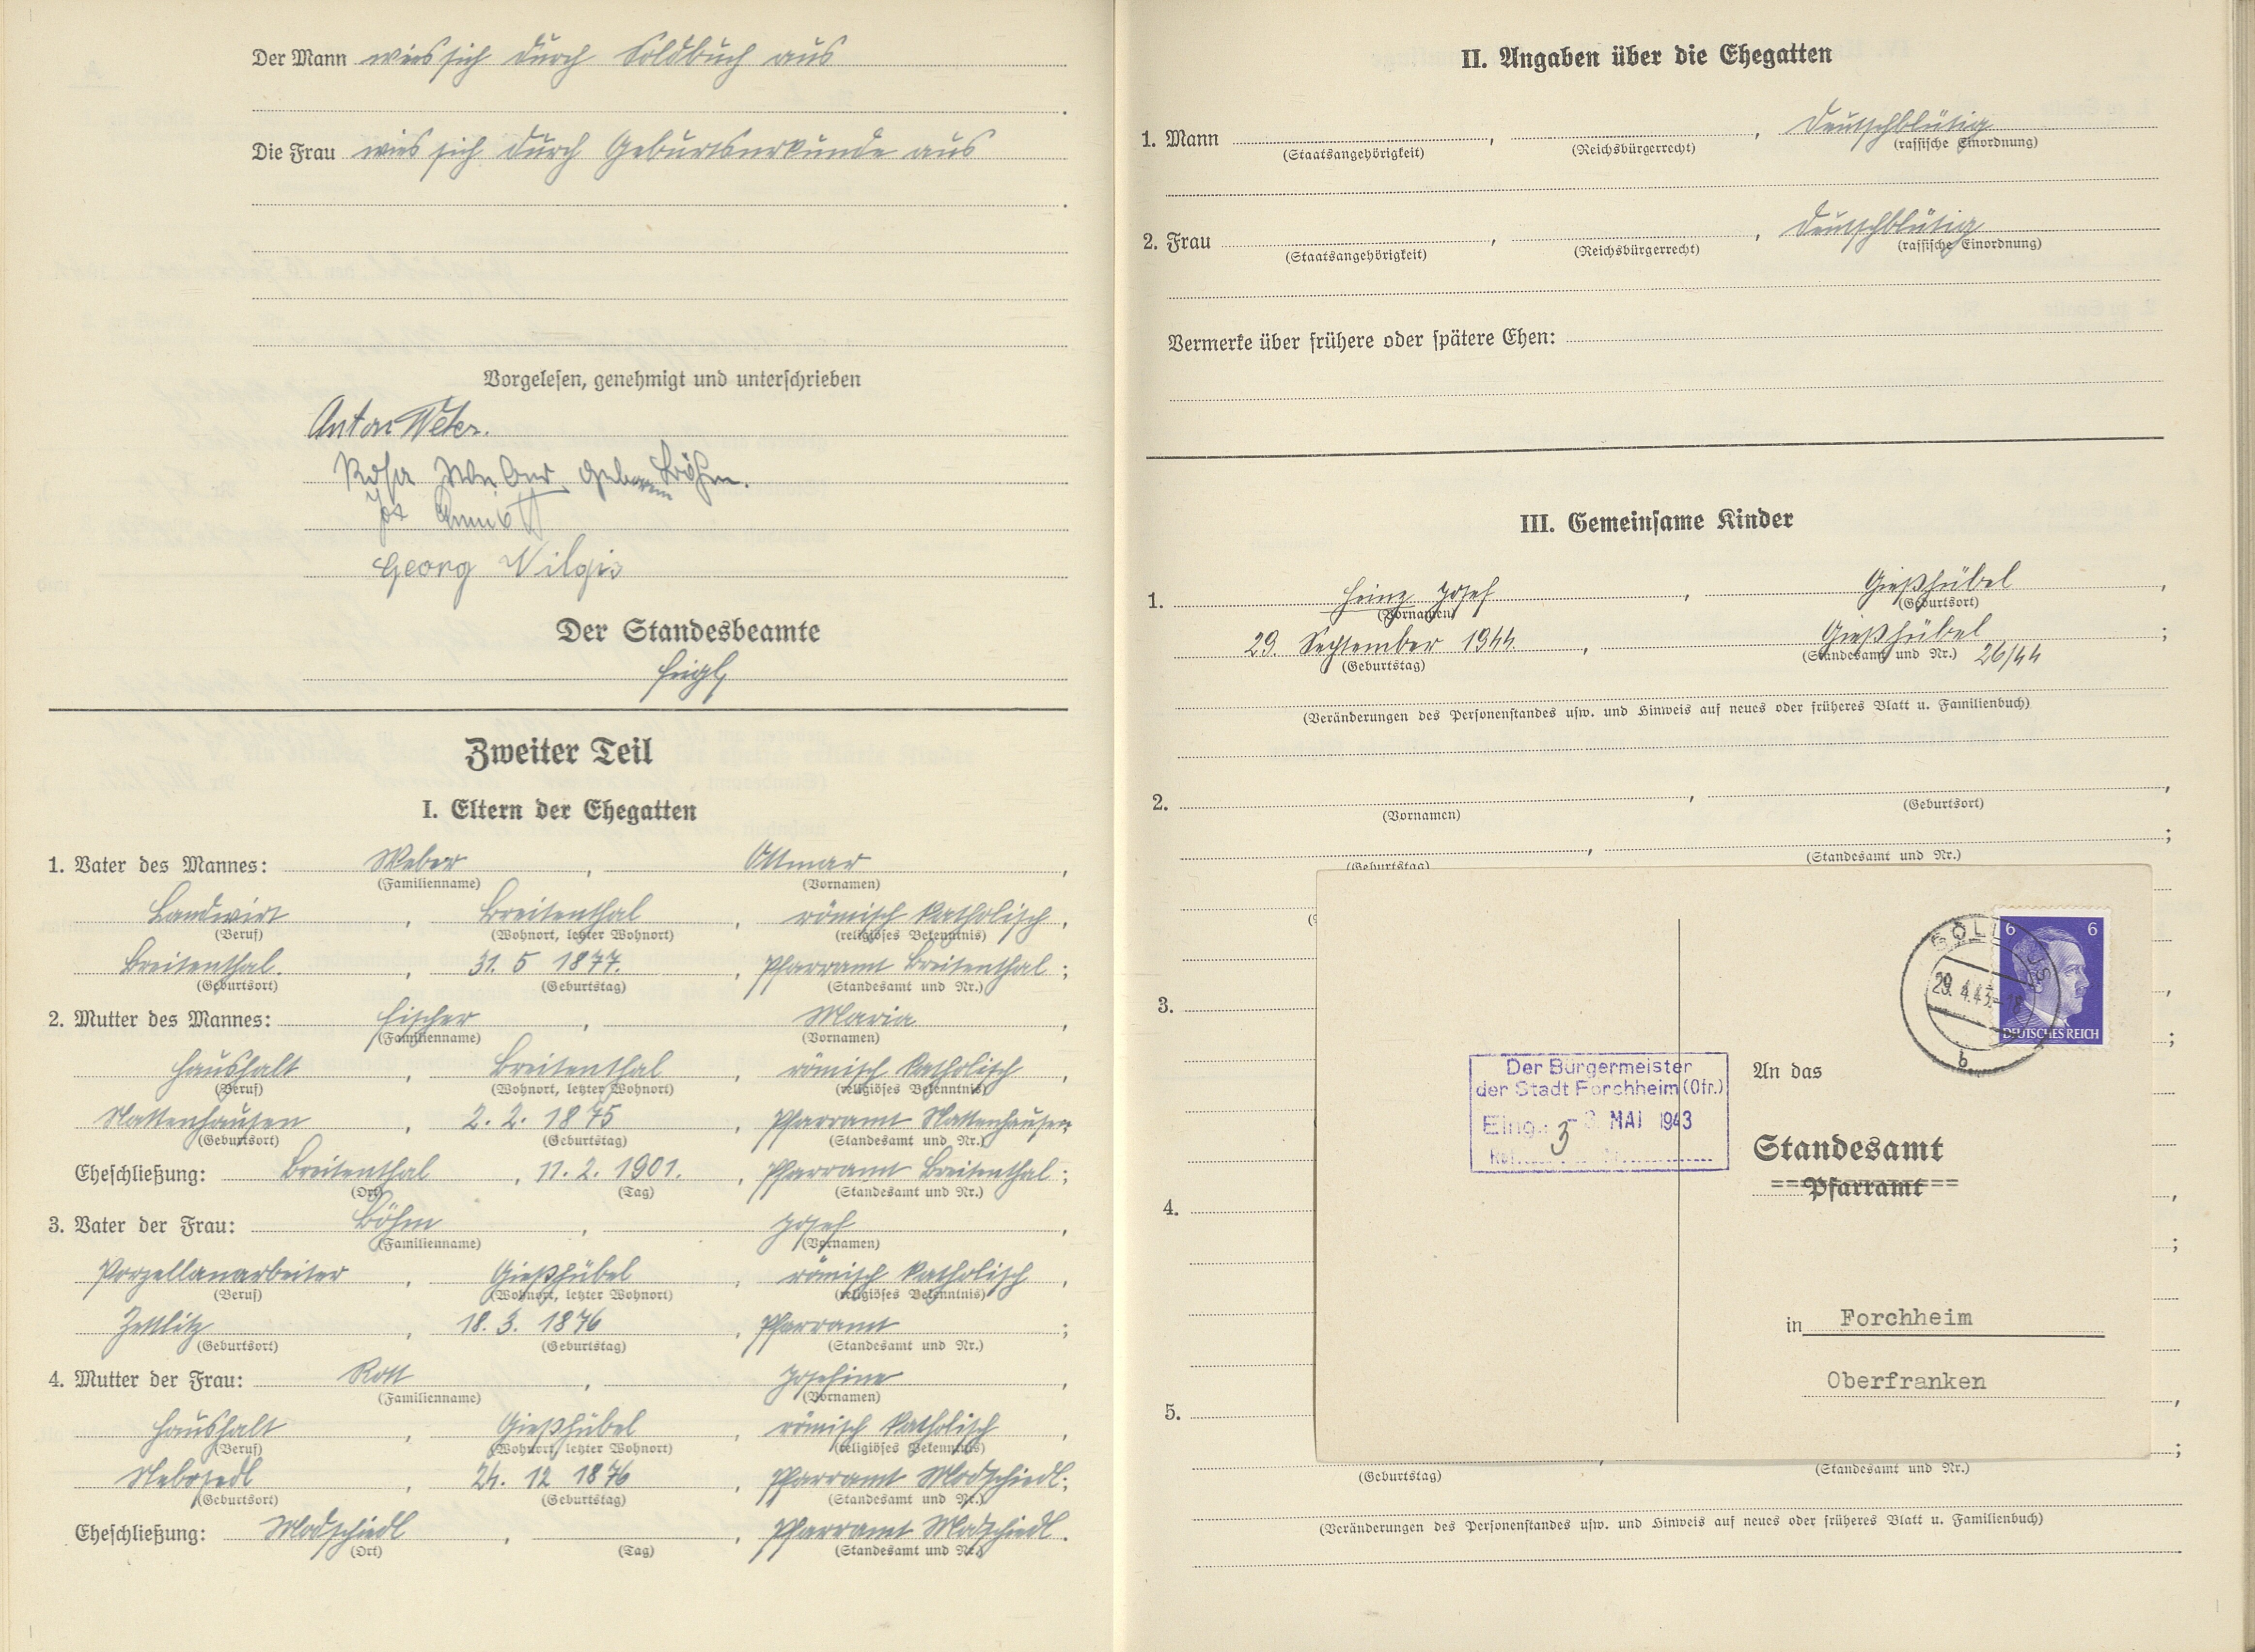 Der Mann wies sich durch Soldbuch aus
Die Frau wies sich durch Geburtsurkunde aus
Vorgelesen, genehmigt und unterschrieben
Anton Weber.
Rosa Weber geborene Böhm.
Georg Vilgis
Der Standesbeamte
Feigl
Zweiter Teil
I. Eltern der Ehegatten
1. Vater des Mannes: Weber, Ottmar,
(Familienname) (Vornamen)
Landwirt, Breitenthal, römisch katholisch,
(Beruf) (Wohnort, letzter Wohnort) (religiöses Bekenntnis)
Breitenthal., 31. 5 1877., Pfarramt Breitenthal;
(Geburtsort) (Geburtstag) (Standesamt und Nr.)
2. Mutter des Mannes: Fischer, Maria,
(Familienname) (Vornamen)
Haushalt, Breitenthal, römisch katholisch,
(Beruf) (Wohnort, letzter Wohnort) (religiöses Bekenntnis)
Nattenhausen, 2. 2. 1875, Pfarramt Nattenhausen
(Geburtsort) (Geburtstag) (Standesamt und Nr.)
Eheschließung: Breitenthal, 11. 2. 1901., Pfarramt Breitenthal;
(Ort) (Tag) (Standesamt und Nr.)
3. Vater der Frau: Böhm, Josef,
(Familienname) (Vornamen)
Porzellanarbeiter, Gießhübel, römisch katholisch,
(Beruf) (Wohnort, letzter Wohnort) (religiöses Bekenntnis)
Zettlitz, 18. 3. 1876, Pfarramt;
(Geburtsort) (Geburtstag) (Standesamt und Nr.)
4. Mutter der Frau: Rott, Josefine,
(Familienname) (Vornamen)
Haushalt, Gießhübel, römisch katholisch,
(Beruf) (Wohnort, letzter Wohnort) (religiöses Bekenntnis)
Nebosedl, 24. 12 1876, Pfarramt Modschiedl;
(Geburtsort) (Geburtstag) (Standesamt und Nr.)
Eheschließung: Modschiedl, , Pfarramt Modschiedl.
(Ort) (Tag) (Standesamt und Nr.)
II. Angaben über die Ehegatten
1. Mann , , Deutschblütig
(Staatsangehörigkeit) (Reichsbürgerrecht) (rassische Einordnung)
2. Frau , , Deutschblütig
(Staatsangehörigkeit) (Reichsbürgerrecht) (rassische Einordnung)
Vermerke über frühere oder spätere Ehen:
III. Gemeinsame Kinder
1. Heinz Josef, Gießhübel,
(Vornamen) (Geburtsort)
29. September 1944., Gießhübel;
(Geburtstag) (Standesamt und Nr.) 26/44
(Veränderungen des Personenstandes usw. und Hinweis auf neues oder früheres Blatt u. Familienbuch)
2. , ,
(Vornamen) (Geburtsort)
, ;
(Geburtstag) (Standesamt und Nr.)
6 6
29. 4.43-18
DEUTSCHES REICH
b
3.
Der Bürgermeister
der Stadt Forchheim (Ofr.)
Eing. - 3. MAI 1943
3
An das
Standesamt
Pfarramt
4.
in Forchheim
Oberfranken
5.
(Geburtstag) (Standesamt und Nr.)
(Veränderungen des Personenstandes usw. und Hinweis auf neues oder früheres Blatt u. Familienbuch)